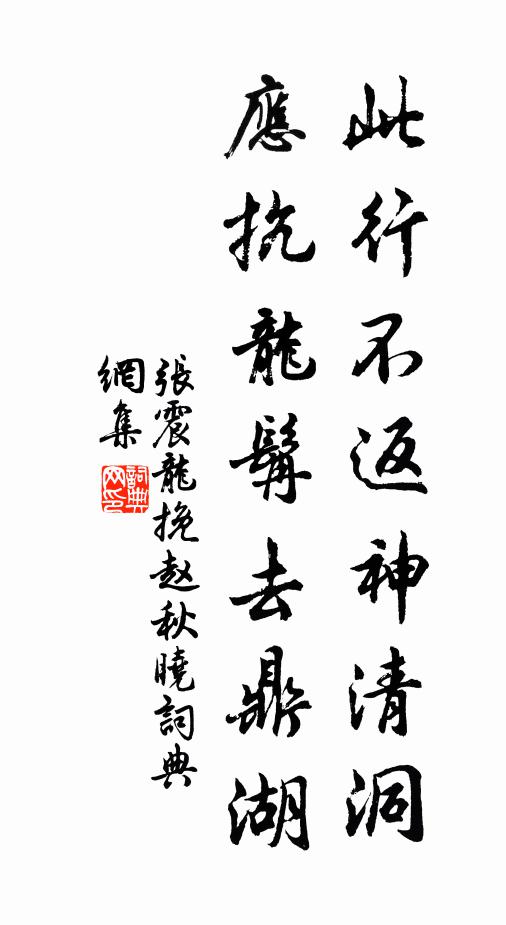 此行不返神清洞
應抗龍髯去鼎湖
張震龍挽赵秋曉詞典
網集
詞典网印